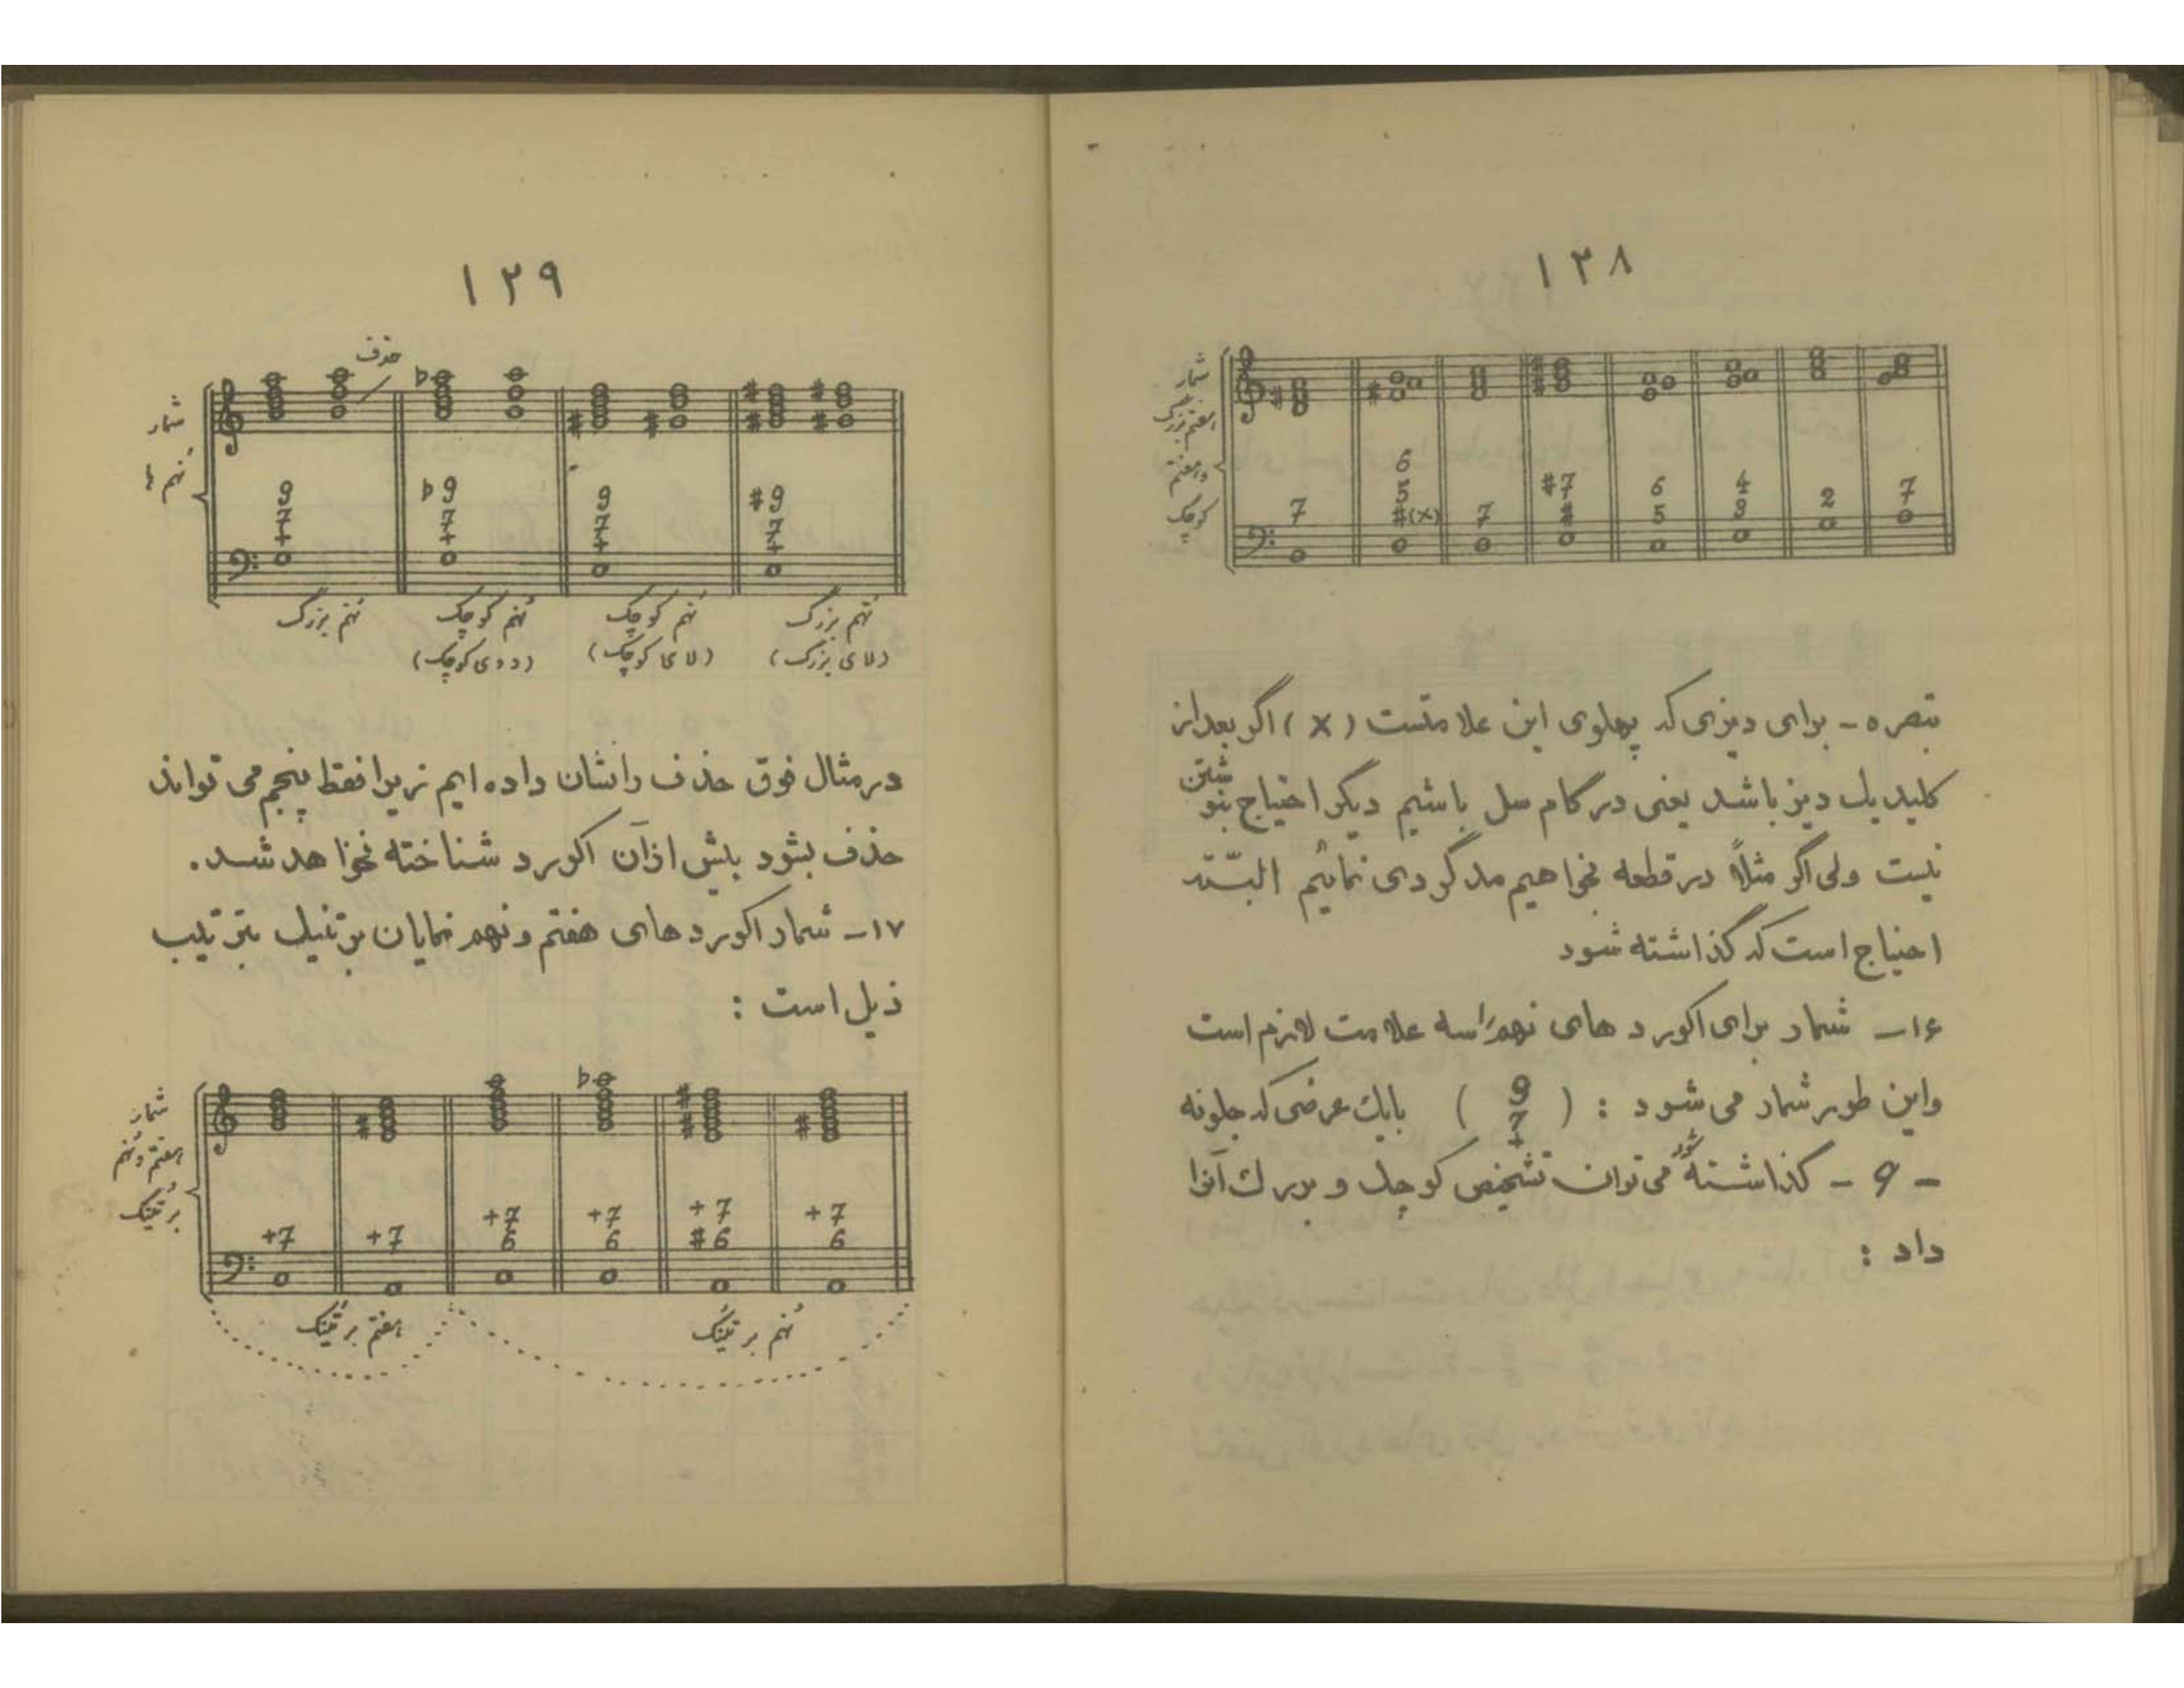 ۱۲۸
شمار
هفتم بزرگ
و هفتم
کوچک
6
5 #7 6 4
7 #(x) 7 # 5 3 2 7
تبصره - برای دیزی که پهلوی این علامتست (x) اگر بعد از
کلید یک دیز باشد یعنی در گام سل باشیم دیگر احتیاج بنوشتن
نیست ولی اگر مثلاً در قطعه بخواهیم مدگردی نمائیم البتّه
احتیاج است که گذاشته شود
۱۶- شمار برای اکورد های نهم سه علامت لازم است
و این طور شمار می شود : ( 9 7 + ) با یک عرضی که جلو نه
- 9 - گذاشته شود می توان تشخیص کوچک و بزرگ آنرا
داد :
۱۲۹
حذف
شمار
نهم ها
9 ♭9 9 #9
7 7 7 7
+ + + +
نهم بزرگ نهم کوچک نهم کوچک نهم بزرگ
(دوی کوچک) (لای کوچک) (لای بزرگ)
در مثال فوق حذف را نشان داده ایم زیرا فقط پنجم می تواند
حذف بشود بیش از آن اکورد شناخته نخواهد شد.
۱۷- شمار اکورد های هفتم و نهم نمایان بر تنیک بترتیب
ذیل است :
شمار
هفتم و نهم
بر تنیک
+7 +7 +7 +7
+7 +7 6 6 #6 6
هفتم بر تنیک نهم بر تنیک